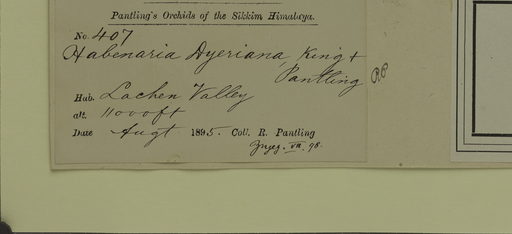 Pantling's Orchids of the Sikkim Himalaya.
No. 407
Habenaria Dyeriana, King &
Pantling
Hab. Lachen Valley
alt. 11000 ft
Date Augt 1895. Coll. R. Pantling
VII. 98.